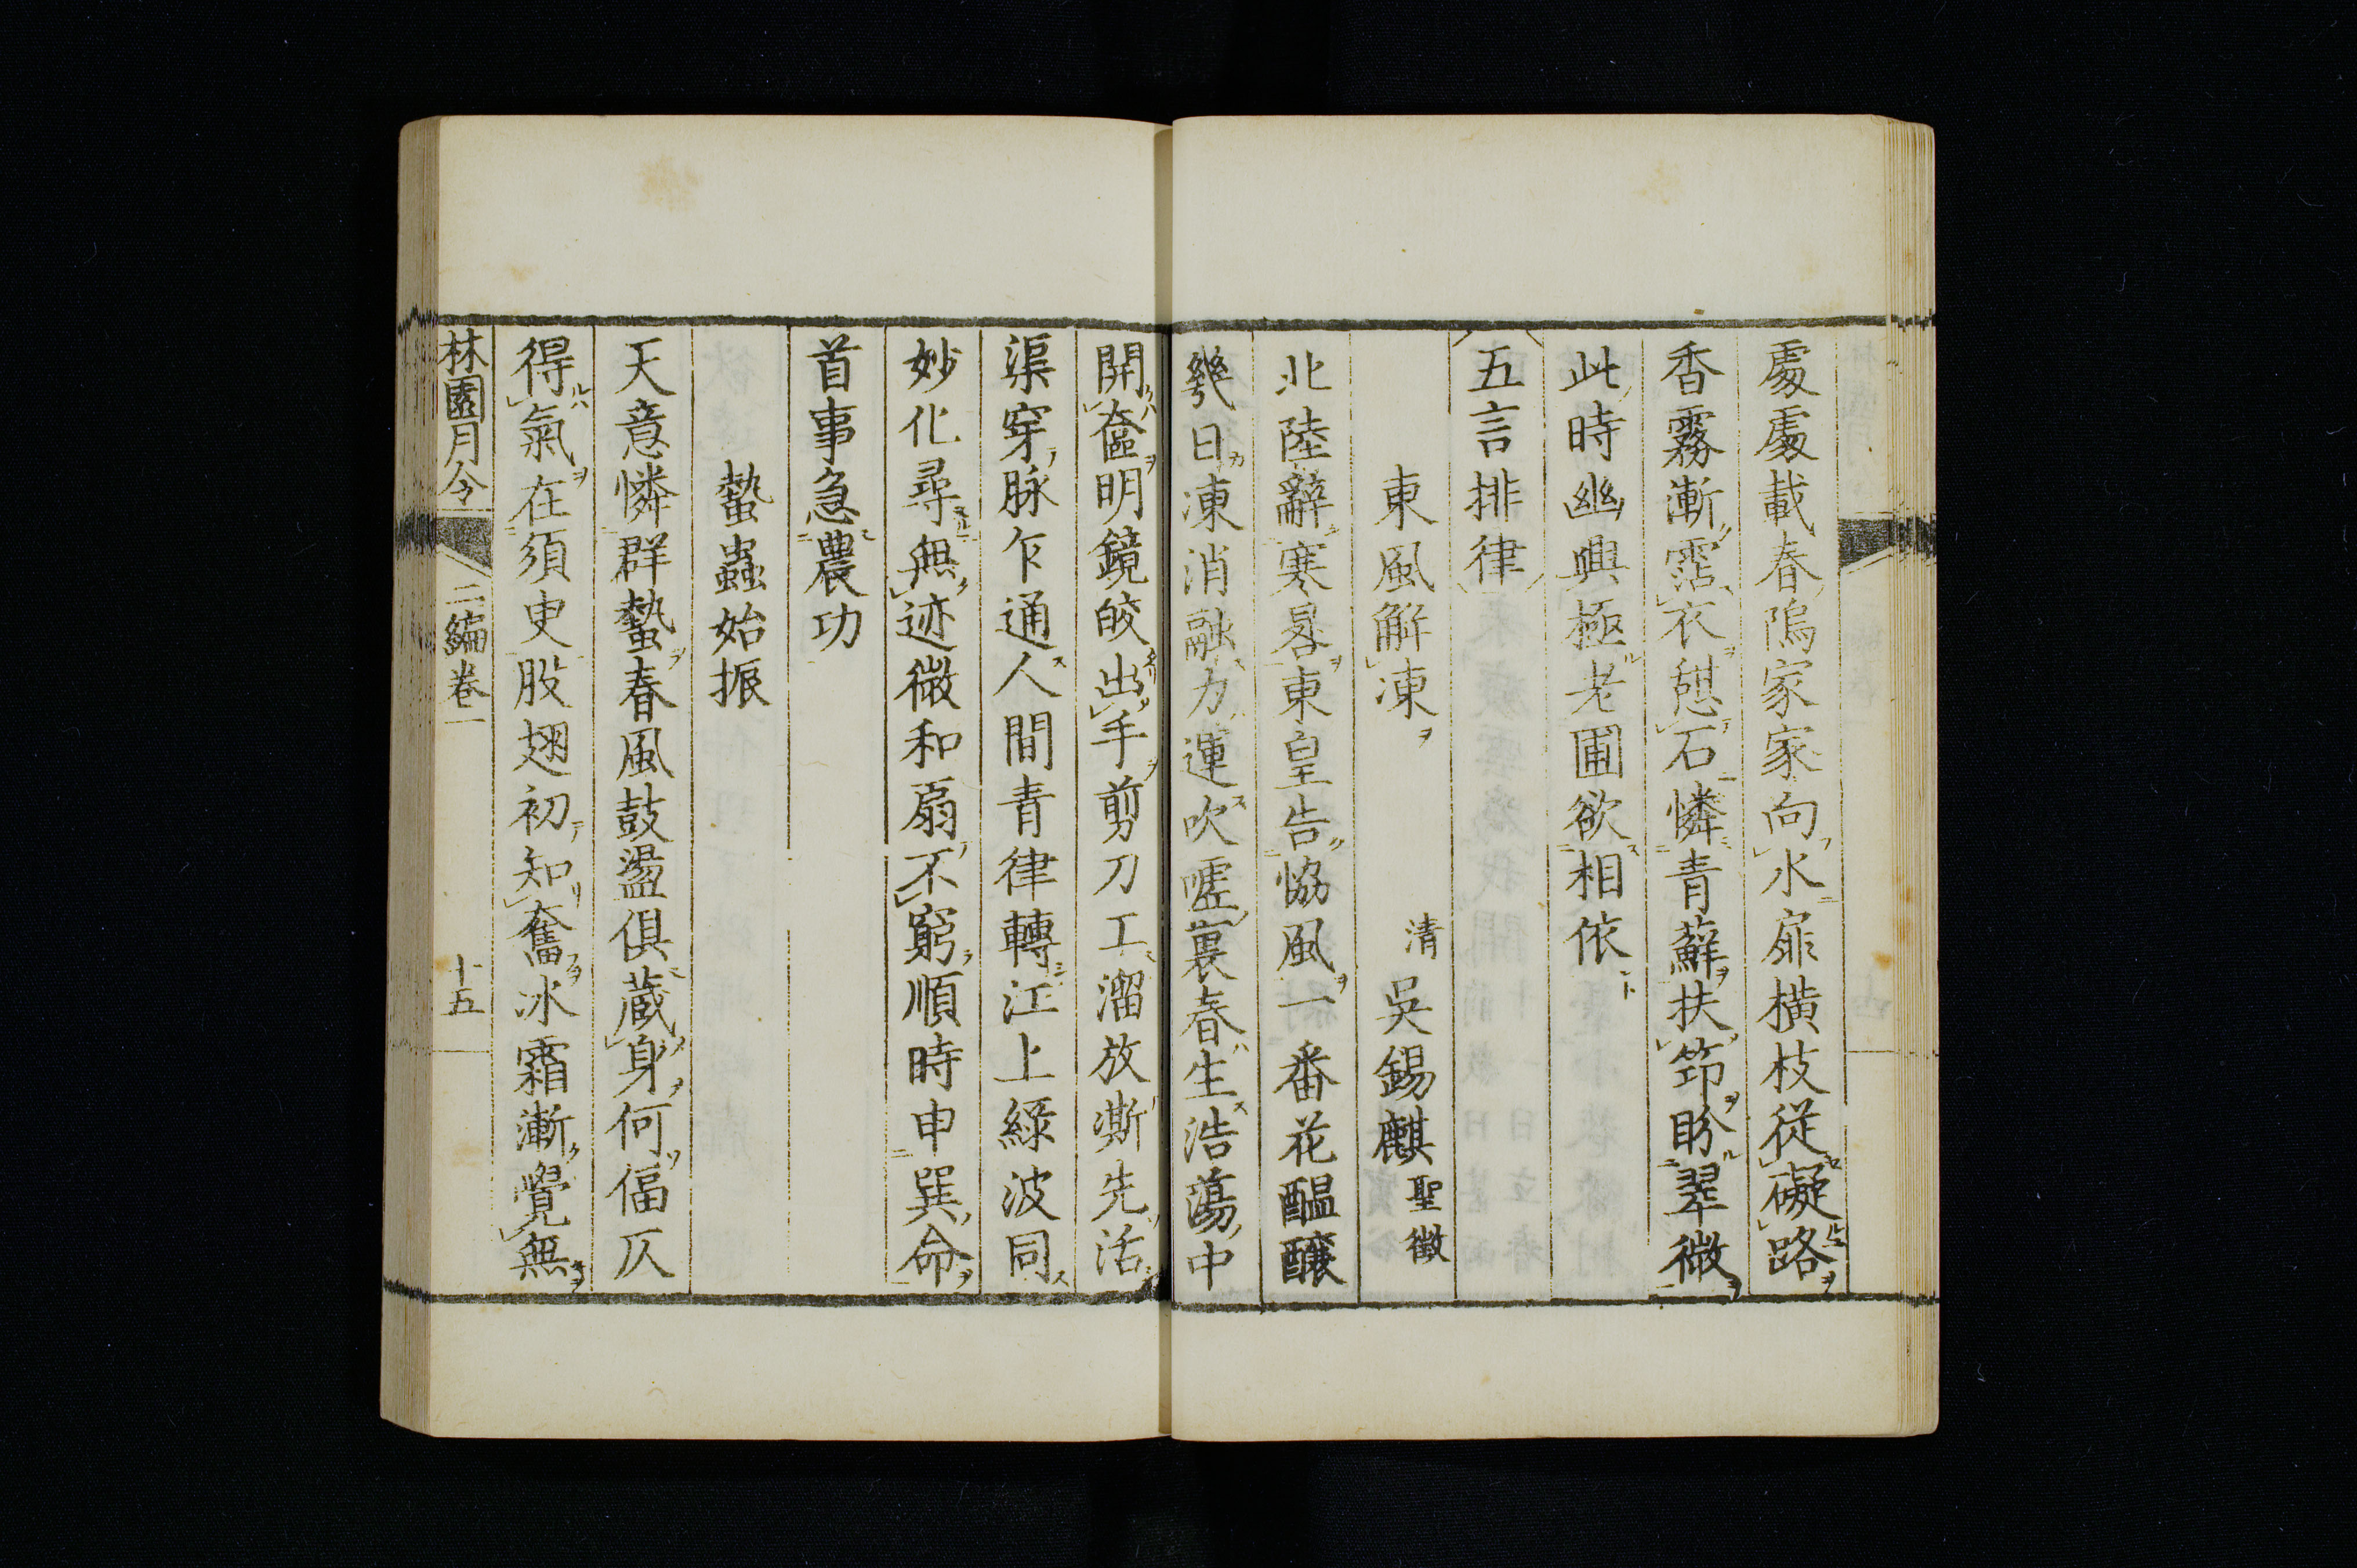 處處載春塢家家向水扉橫枝從礙路
香霧漸霑衣憇石憐青蘚扶筇盼翠微
此時幽興極老圃欲相依
五言排律
東風解凍 清 吳錫麒聖徵
北陸辭寒晷東皇告恊風一番花醖釀
幾日凍消融力運吹噓裏春生浩蕩中
開奩明鏡皎出手剪刀工溜放澌先活
渠穿脉乍通人間青律轉江上綠波同
妙化尋無迹微和扇不窮順時申巽命
首事急農功
蟄蟲始振
天意憐群蟄春風鼓盪俱藏身何偪仄
得氣在須臾股翅初知奮冰霜漸覺無
林園月令 二編卷一 十五